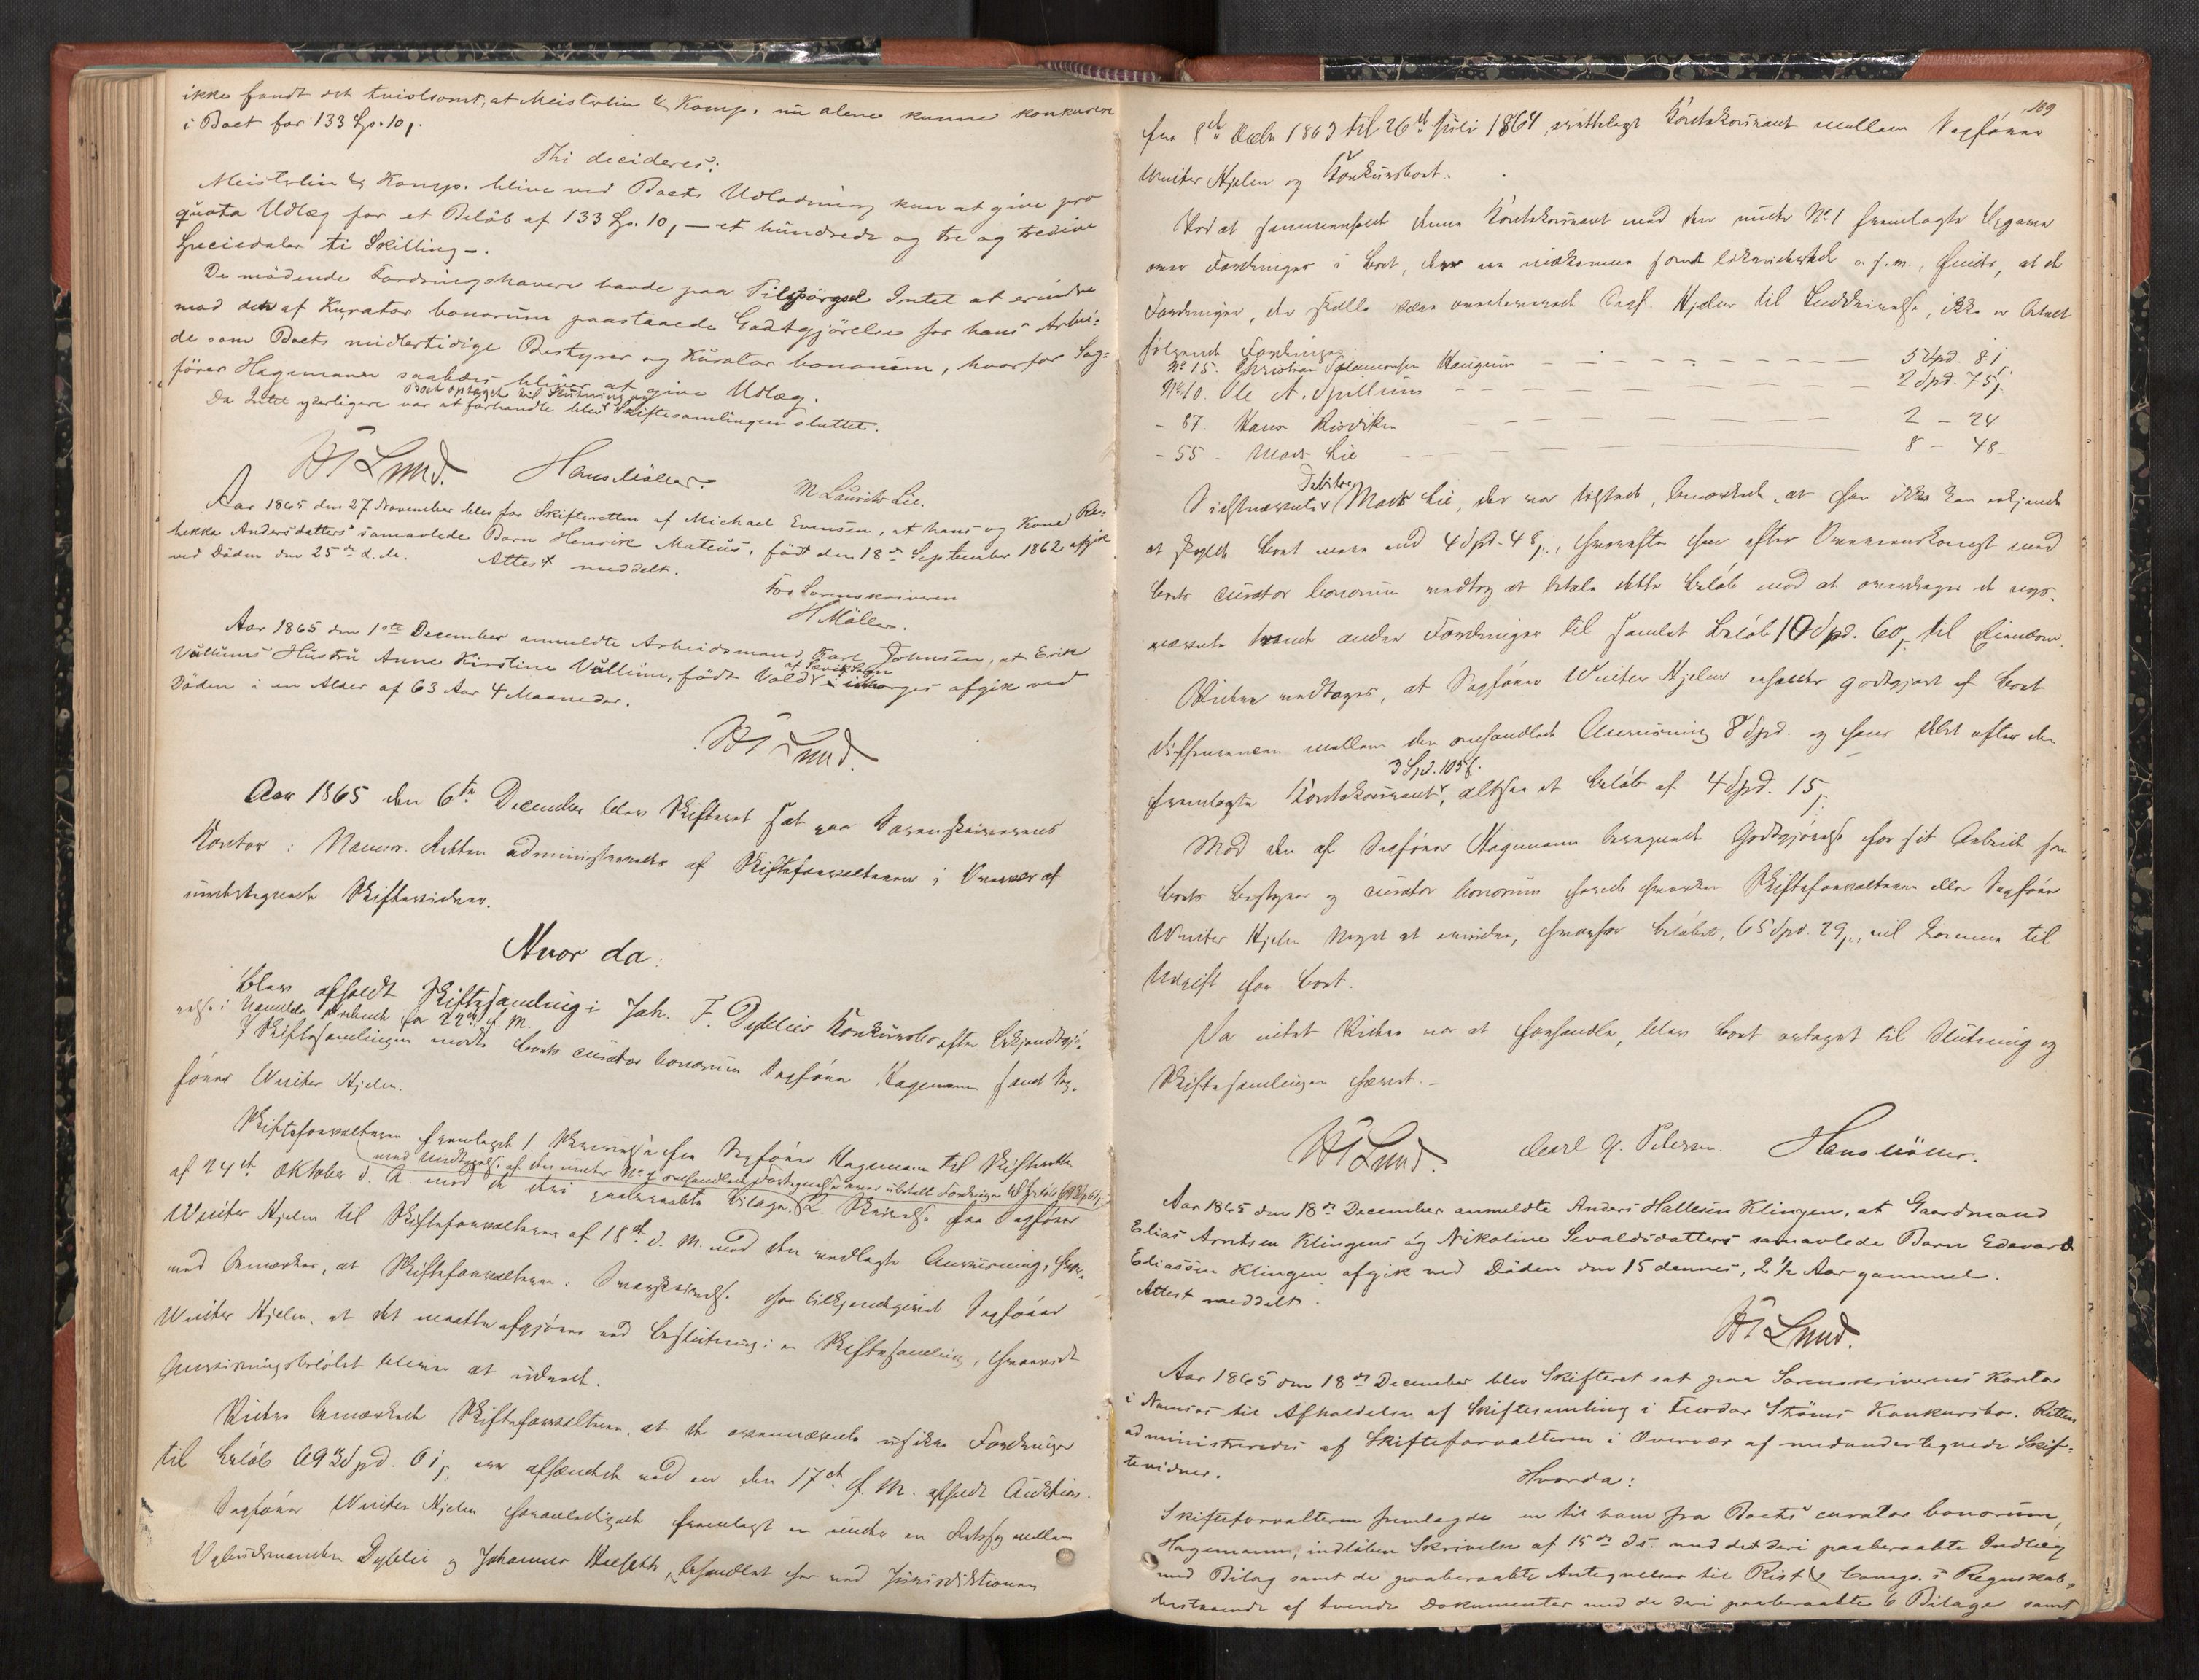 ikke fandt det tvivlsomt, at Meisterlin & Komp. nu alene kunne konkurere
i Boet for 133 Sp. 10 ß.
Thi decideres:
Meisterlin & Komp. blive ved Boets Udlodning kun at give pro
quota Udlæg for et Beløb af 133 Sp. 10 ß — et hundrede og tre og tredive
Speciedaler ti Skilling —.
De mødende Fordringshavere havde paa Tilspørgsel Intet at erindre
mod den af Kurator bonorum paastaaede Godtgjørelse for hans Arbei-
de som Boets midlertidige Bestyrer og Kurator bonorum, hvorfor Sag-
fører Hagemann saaledes bliver at give Udlæg.
Boet optaget til Slutning og
Da Intet yderligere var at forhandle blev Skiftesamlingen sluttet.
Lund. Hans Möller. M Laurits Lie.
Aar 1865 den 27 November blev for Skifteretten af Michael Evensen, at hans og Kone Re-
bekka Andersdatters samavlede Barn Henrik Mateus, født den 18de September 1862 afgik
ved Døden den 25de d. M. Attest meddelt.
For Sorenskriveren
H Möller.
Aar 1865 den 1ste December anmeldte Arbeidsmand Karl Johnsen, at Erik
Vullums Hustru Anne Kirstine Vullum, født Vold af Sogn afgik ved
Døden i en Alder af 63 Aar 4 Maaneder.
Lund.
Aar 1865 den 6te December blev Skifteret sat paa Sorenskriverens
Kontor i Namsos. Retten administreredes af Skifteforvalteren i Overvær af
undertegnede Skiftevidner.
Hvor da:
blev afholdt Skiftesamling i Joh. F. Dyblies Konkursbo efter Bekjendtgjø-
relse i for 22de f. M.
I Skiftesamlingen mødte Boets curator bonorum Sagfører Hagemann samt Sag-
fører Winter Hjelm.
Skifteforvalteren fremlagde 1. Skrivelse fra Sagfører Hagemann til Skifteretten
med Undtagelse af den under No 4 omhandlede Fortegnelse over ubetalte Fordringer
af 24de Oktober d. A. med de deri paaberaabte Bilage. 2. Skrivelse fra Sagfører
Winter Hjelm til Skifteforvalteren af 18de d. M. med den vedlagte Anvisning, hvor-
ved bemærkes, at Skifteforvalteren i Svarskrivelse har tilkjendegivet Sagfører
Winter Hjelm, at det maatte afgjøres ved Beslutning i en Skiftesamling, hvorvidt
Anvisningsbeløbet bliver at udrede.
Videre bemærkede Skifteforvalteren, at de ovennævnte usikre Fordringer
til Beløb 693 Spd. 61 ß var afhændet ved en den 17de f. M. afholdt Auktion.
Sagfører Winter Hjelm fremlagt en under en Retssag mellem
Dyblie og Johannes behandlet her ved Jurisdiktionen
109
fra 8de Decbr 1863 til 26de Juli 1864 Kontokourant mellem Sagfører
Winter Hjelm og Konkursboet.
Ved at sammenholde denne Kontokourant med den under No 1 fremlagte Opgave
over Fordringer i Boet, der er indkomne samt likviderede o. s. v., findes, at de
Fordringer, der skulle være overleverede Sagf. Hjelm til Inddrivelse, ikke er betalt
følgende Fordringer
No 15. Christian Salamonsen Haugum — 5 Spd. 81
No 10. Ole A. Spillum — 2 Spd. 75 ß
- 87. Hans Rosviken — 2 - 24
- 55 - Mads Lie — 8 - 48 -
Debitor
Sidstnævnte Mads Lie, der var tilstede, bemærkede, at han ikke kan vedgaa
at skylde Boet mere end 4 Spd. 48 ß, hvorefter han efter Overenskomst med
Boets curator bonorum vedtog at betale dette Beløb mod at overdrages de oven-
nævnte andre Fordringer til samlet Beløb 10 Spd. 60 ß til Eiendom.
Videre vedtoges, at Sagfører Winter Hjelm erholder godtgjort af Boet
Differencen mellem den omhandlede Anvisning 8 Spd. og hans efter den
3 Spd. 105 ß.
fremlagte Kontokourant, altsaa et Beløb af 4 Spd. 15 ß.
Mod den af Sagfører Hagemann beregnede Godtgjørelse for sit Arbeide som
Boets Bestyrer og curator bonorum havde hverken Skifteforvalteren eller Sagfører
Winter Hjelm Noget at erindre, hvorfor Beløbet, 65 Spd. 29 ß, vil komme til
Udgift for Boet.
Da intet Videre var at forhandle, blev Boet optaget til Slutning og
Skiftesamlingen hævet. —
Lund. Carl G. Petersen. Hans Möller.
Aar 1865 den 18de December anmeldte Anders Hallesen Klingen, at Gaardmand
Elias Arntsen Klingens og Nikoline Sevaldsdatters samavlede Barn Edevard
Eliassøn Klingen afgik ved Døden den 15 dennes, 2 1/2 Aar gammel.
Attest meddelt.
Lund.
Aar 1865 den 18de December blev Skifteret sat paa Sorenskriverens Kontor
i Namsos til Afholdelse af Skiftesamling i Feodor Strøms Konkursbo. Retten
administreredes af Skifteforvalteren i Overvær af medundertegnede Skif-
tevidner.
Hvorda:
Skifteforvalteren fremlagde en til ham fra Boets curator bonorum,
Hagemann, indløben Skrivelse af 15de ds. med det deri paaberaabte Indlæg
med Bilag samt de paaberaabte Antegnelser til Rist & Comps. Regnskab,
bestaaende af tvende Dokumenter med de deri paaberaabte 6 Bilage samt